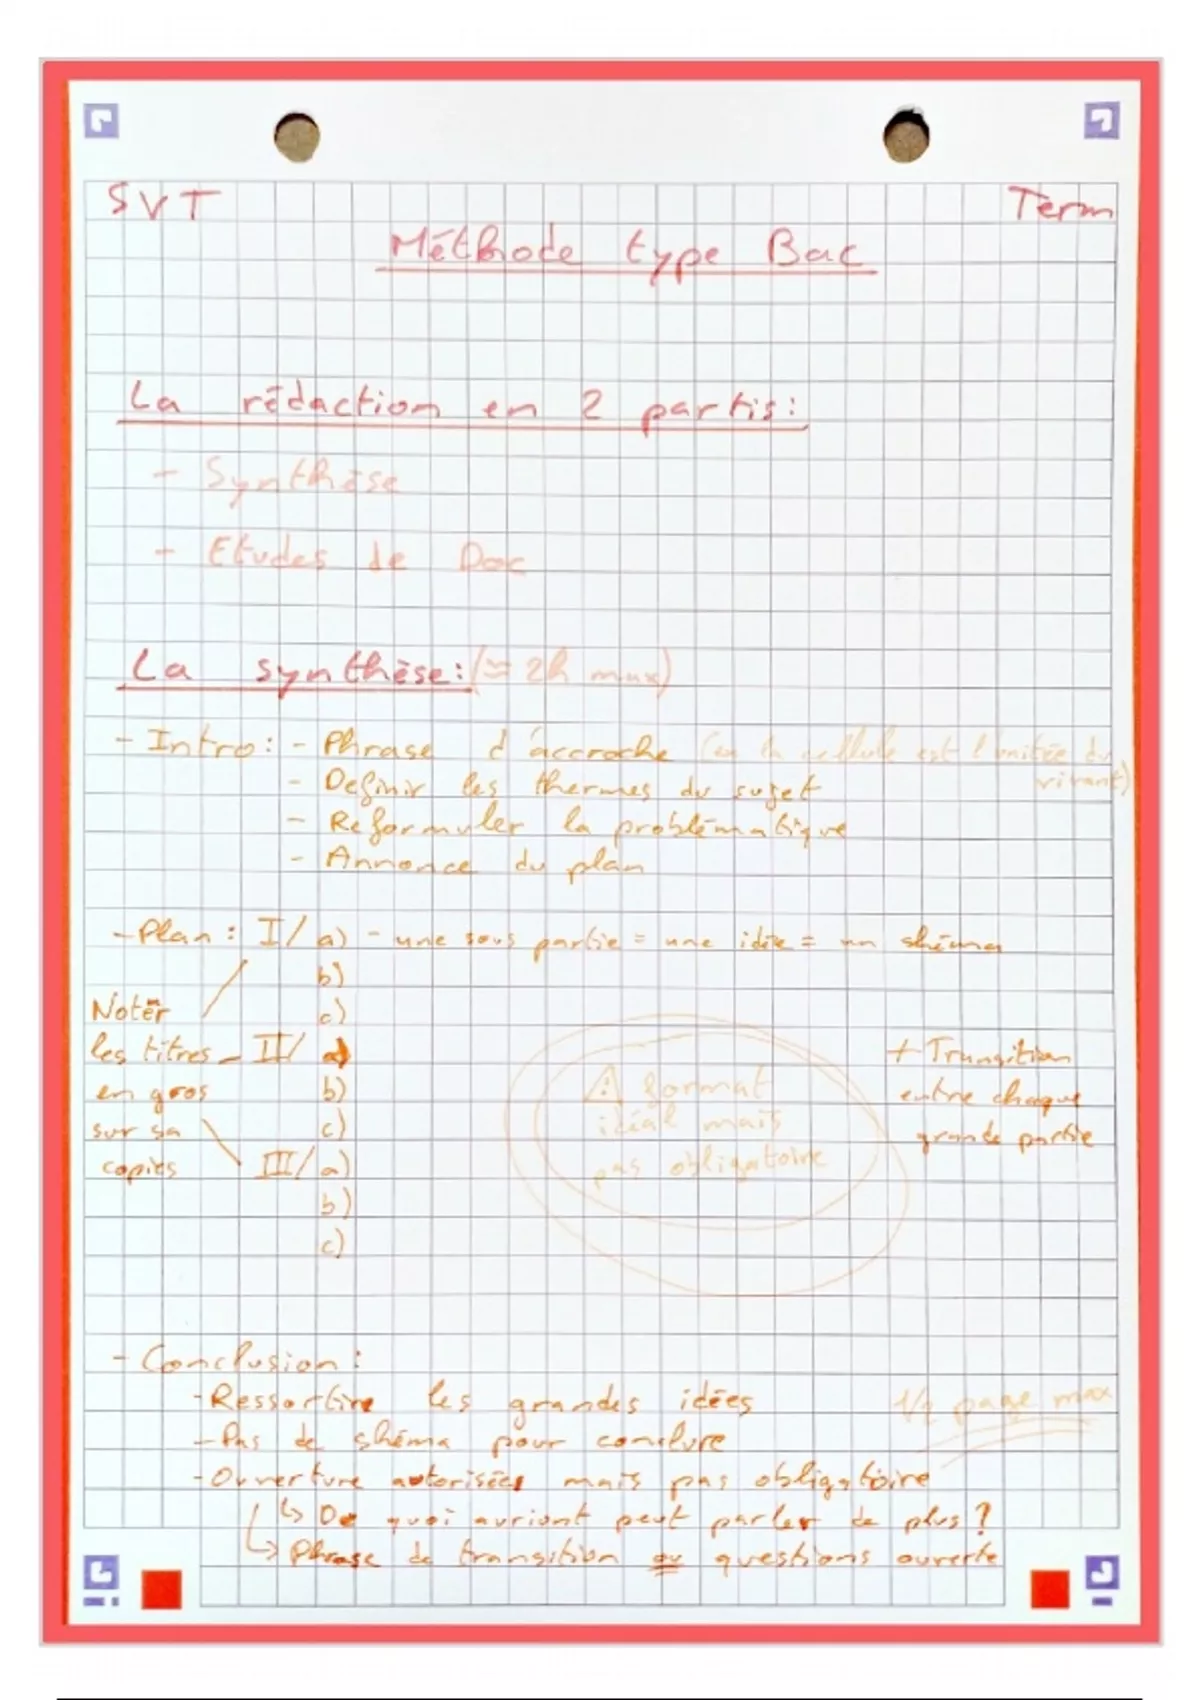 SVT Term
Méthode type Bac
La rédaction en 2 partis :
- Synthèse
- Etudes de Doc
La synthèse : (≈ 2h max)
- Intro : - Phrase d'accroche (ex la cellule est l'unitée du
vivant)
- Definir les thermes du sujet
- Reformuler la problématique
- Annonce du plan
- Plan : I/ a) - une sous partie = une idée = un shéma
b)
Noter c)
les titres II/ a) + Transition
en gros b) entre chaque
sur sa c) grande partie
copies III/ a)
b)
c)
⚠ format
idéal mais
pas obligatoire
- Conclusion :
- Ressortire les grandes idées 1/2 page max
- Pas de shéma pour conclure
- Ouverture autorisées mais pas obligatoire
↳ De quoi auriont peut parler de plus ?
↳ Phrase de transition ou questions ouverte